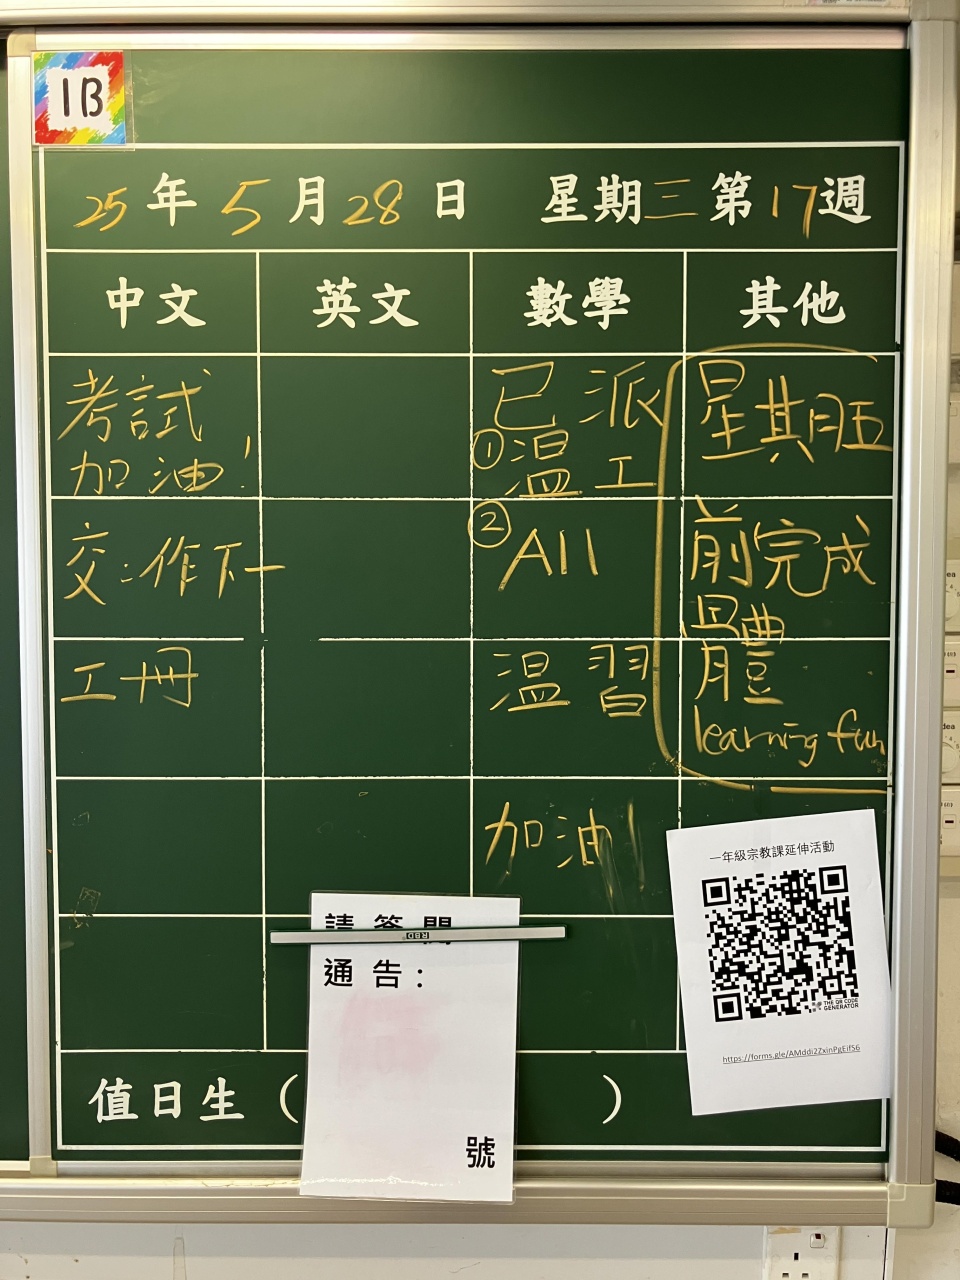 1B
25年5月28日 星期三第17週
中文 英文 數學 其他
考試
加油！
交：作下一
工冊
已派
①溫工
②All
溫習
加油！
星期五
前完成
learning fun
一年級宗教課延伸活動
THE QR CODE
GENERATOR
https://forms.gle/AMddi2ZxinPgEifS6
請簽閱
RBD
通告：
號
值日生（ ）